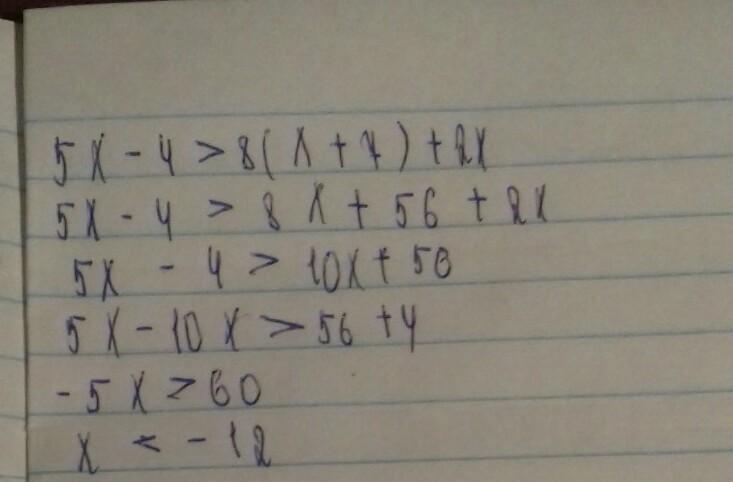 5x - 4 > 8(x + 7) + 2x
5x - 4 > 8x + 56 + 2x
5x - 4 > 10x + 56
5x - 10x > 56 + 4
-5x > 60
x < -12